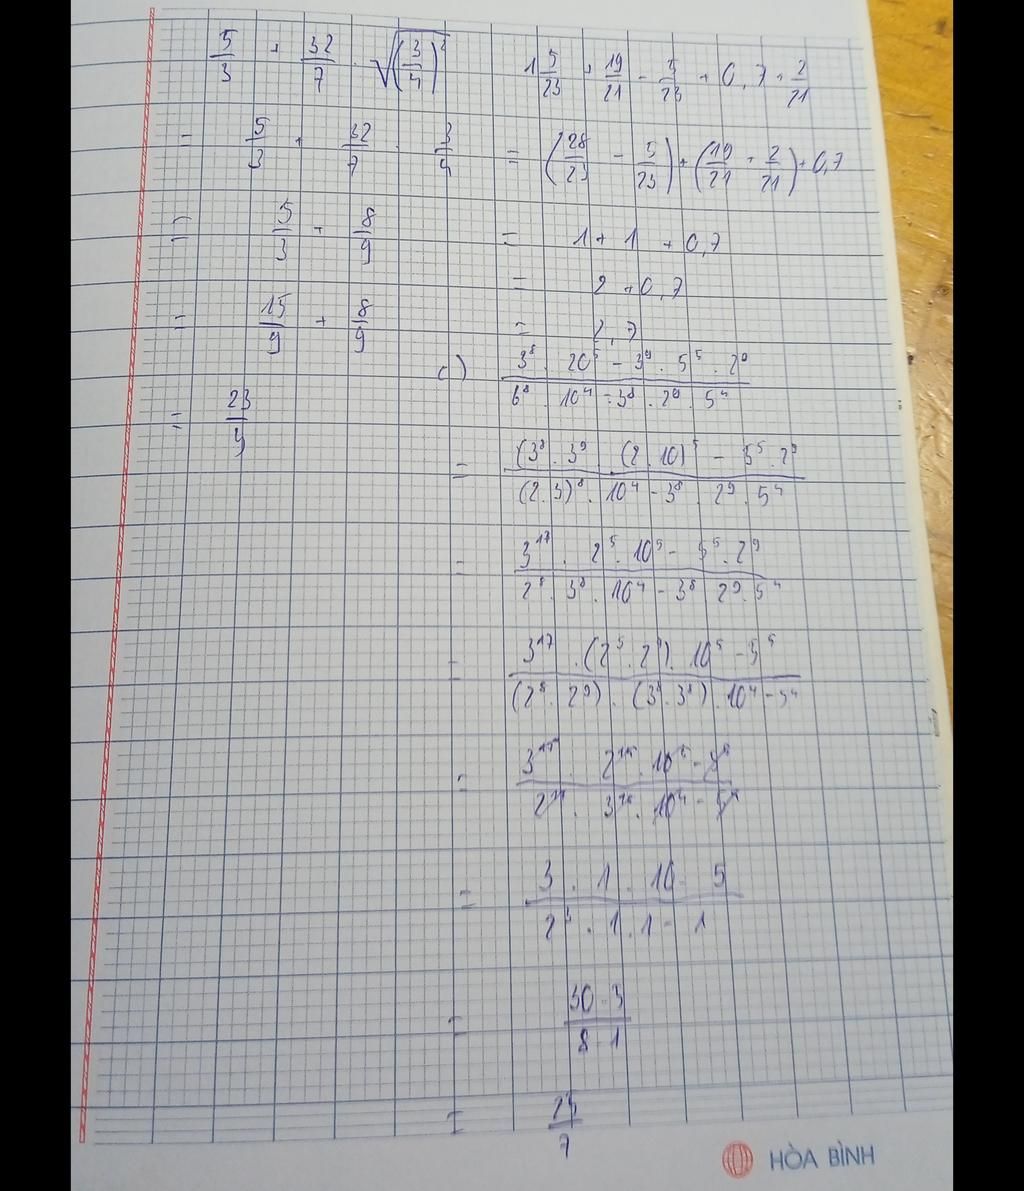 5/3 + 32/7 · √(3/4)²
= 5/3 + 32/7 · 3/4
= 5/3 + 8/9
= 15/9 + 8/9
= 23/9
1 5/23 + 19/21 - 5/23 + 0,7 + 2/21
= (28/23 - 5/23) + (19/21 + 2/21) + 0,7
= 1 + 1 + 0,7
= 2 + 0,7
= 2,7
c) (3⁸ · 20⁵ - 3⁹ · 5⁵ · 2⁹) / (6⁸ · 10⁴ - 3⁸ · 2⁹ · 5⁴)
= ((3⁸ · 3⁹ · (2 · 10)⁵ - 5⁵ · 2⁹) / ((2 · 3)⁸ · 10⁴ - 3⁸ · 2⁹ · 5⁴)
= (3¹⁷ · 2⁵ · 10⁵ - 5⁵ · 2⁹) / (2⁸ · 3⁸ · 10⁴ - 3⁸ · 2⁹ · 5⁴)
= (3¹⁷ · (2⁵ · 2⁹) · 10⁵ - 5⁵) / ((2⁸ · 2⁹) · (3⁸ · 3⁸) · 10⁴ - 5⁴)
= (3 · 1 · 10 - 5) / (2³ · 1 · 1 - 1)
= 25/7
HÒA BÌNH